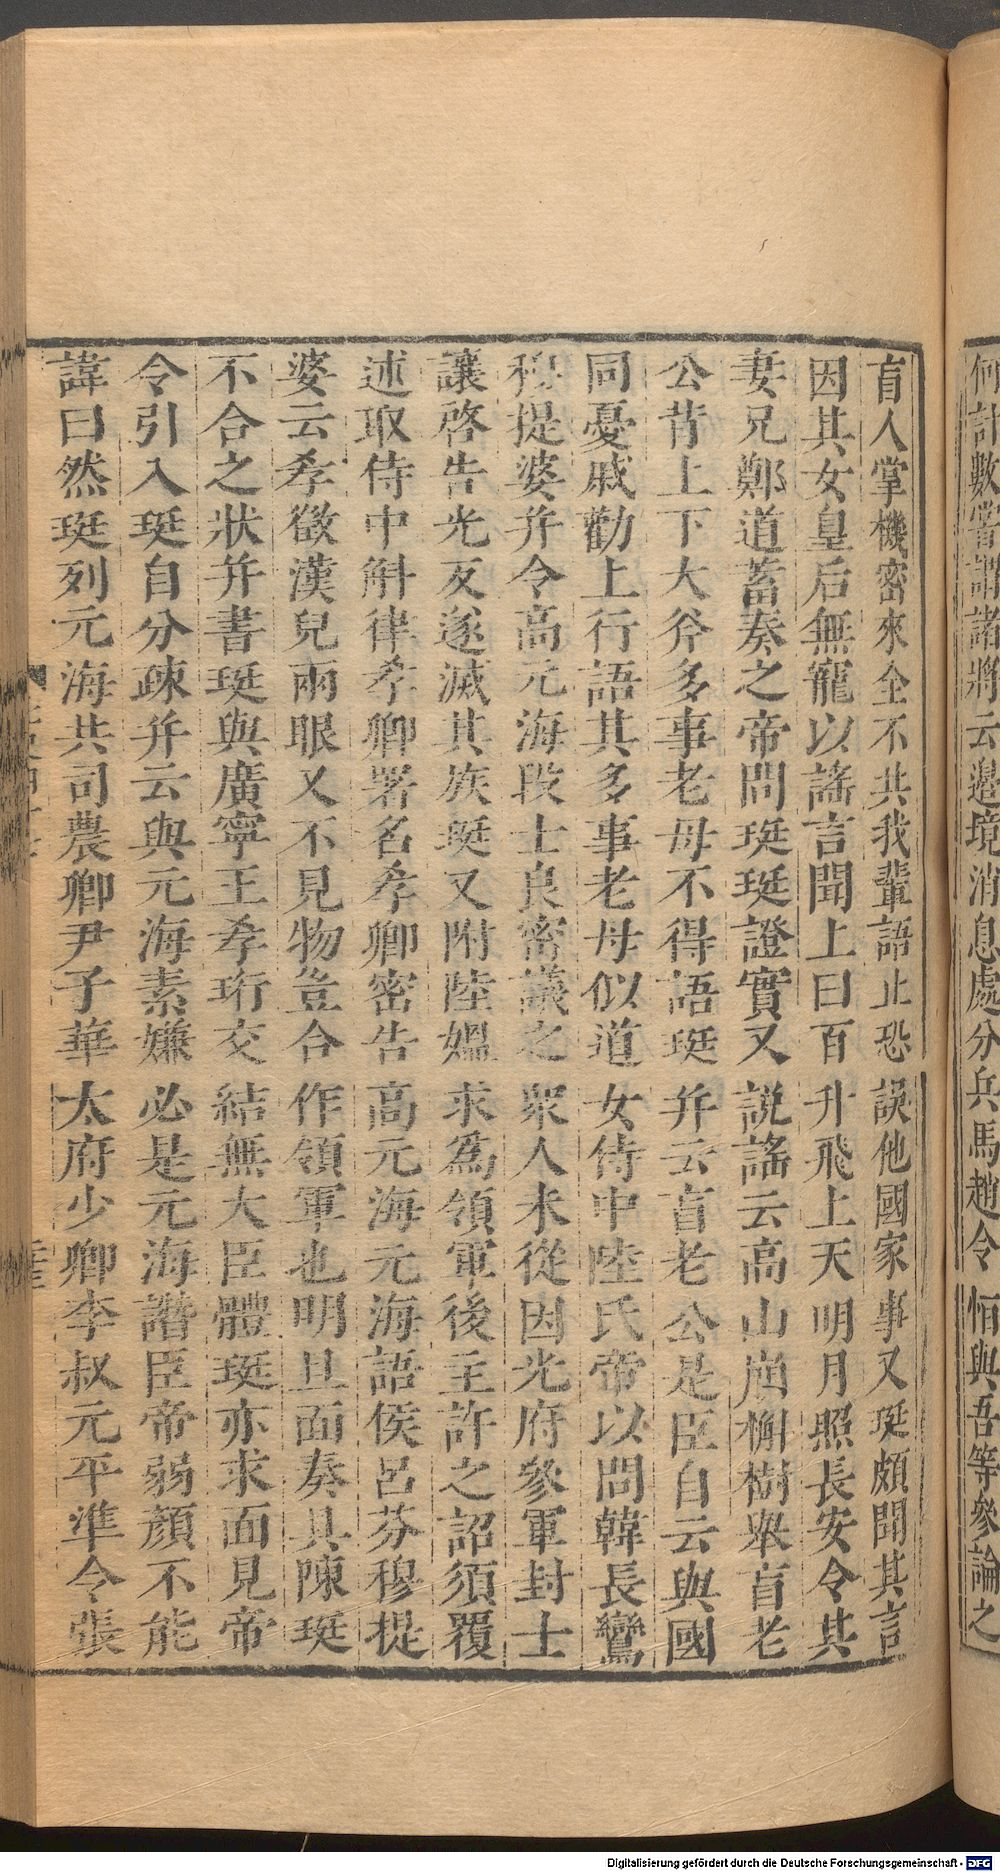 何計數嘗謂諸將云邊境消息處分兵馬趙令恒與吾等參論之
盲人掌機密來全不共我輩語止恐誤他國家事又珽頗聞其言
因其女皇后無寵以謠言聞上曰百升飛上天明月照長安令其
妻兄鄭道蓋奏之帝問珽珽證實又說謠云高山崩槲樹舉盲老
公背上下大斧多事老母不得語珽幷云盲老公是臣自云與國
同憂戚勸上行語其多事老母似道女侍中陸氏帝以問韓長鸞
穆提婆幷令高元海段士良密議之眾人未從因光府參軍封士
讓啓告光反遂滅其族珽又附陸媼求爲領軍後主許之詔須覆
述取侍中斛律孝卿署名孝卿密告高元海元海語侯呂芬穆提
婆云孝徵漢兒兩眼又不見物豈合作領軍也明旦面奏具陳珽
不合之狀幷書珽與廣寧王孝珩交結無大臣體珽亦求面見帝
令引入珽自分疎幷云與元海素嫌必是元海譖臣帝弱顏不能
諱曰然珽列元海共司農卿尹子華太府少卿李叔元平準令張
Digitalisierung gefördert durch die Deutsche Forschungsgemeinschaft - DFG